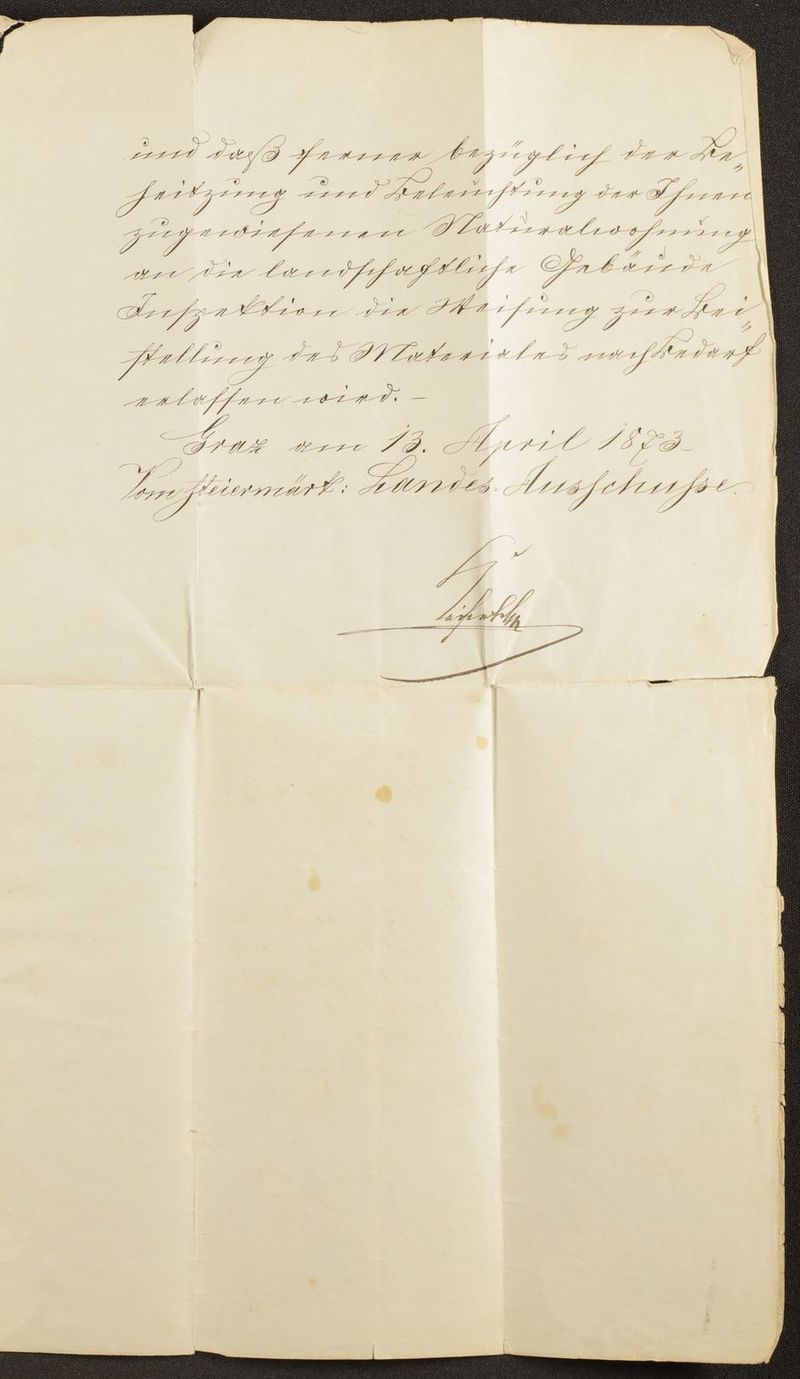 und daß ferner bezüglich der Be„
heitzung und Beleuchtung der Ihnen
zugewiesenen Naturalwohnung
an die landschaftliche Gebäude
Inspektion die Weisung zur Bei„
stellung des Materiales nach Bedarf
erlassen wird. –
Graz am 13. April 1873
Vom steiermärk: Landes-Ausschusse.